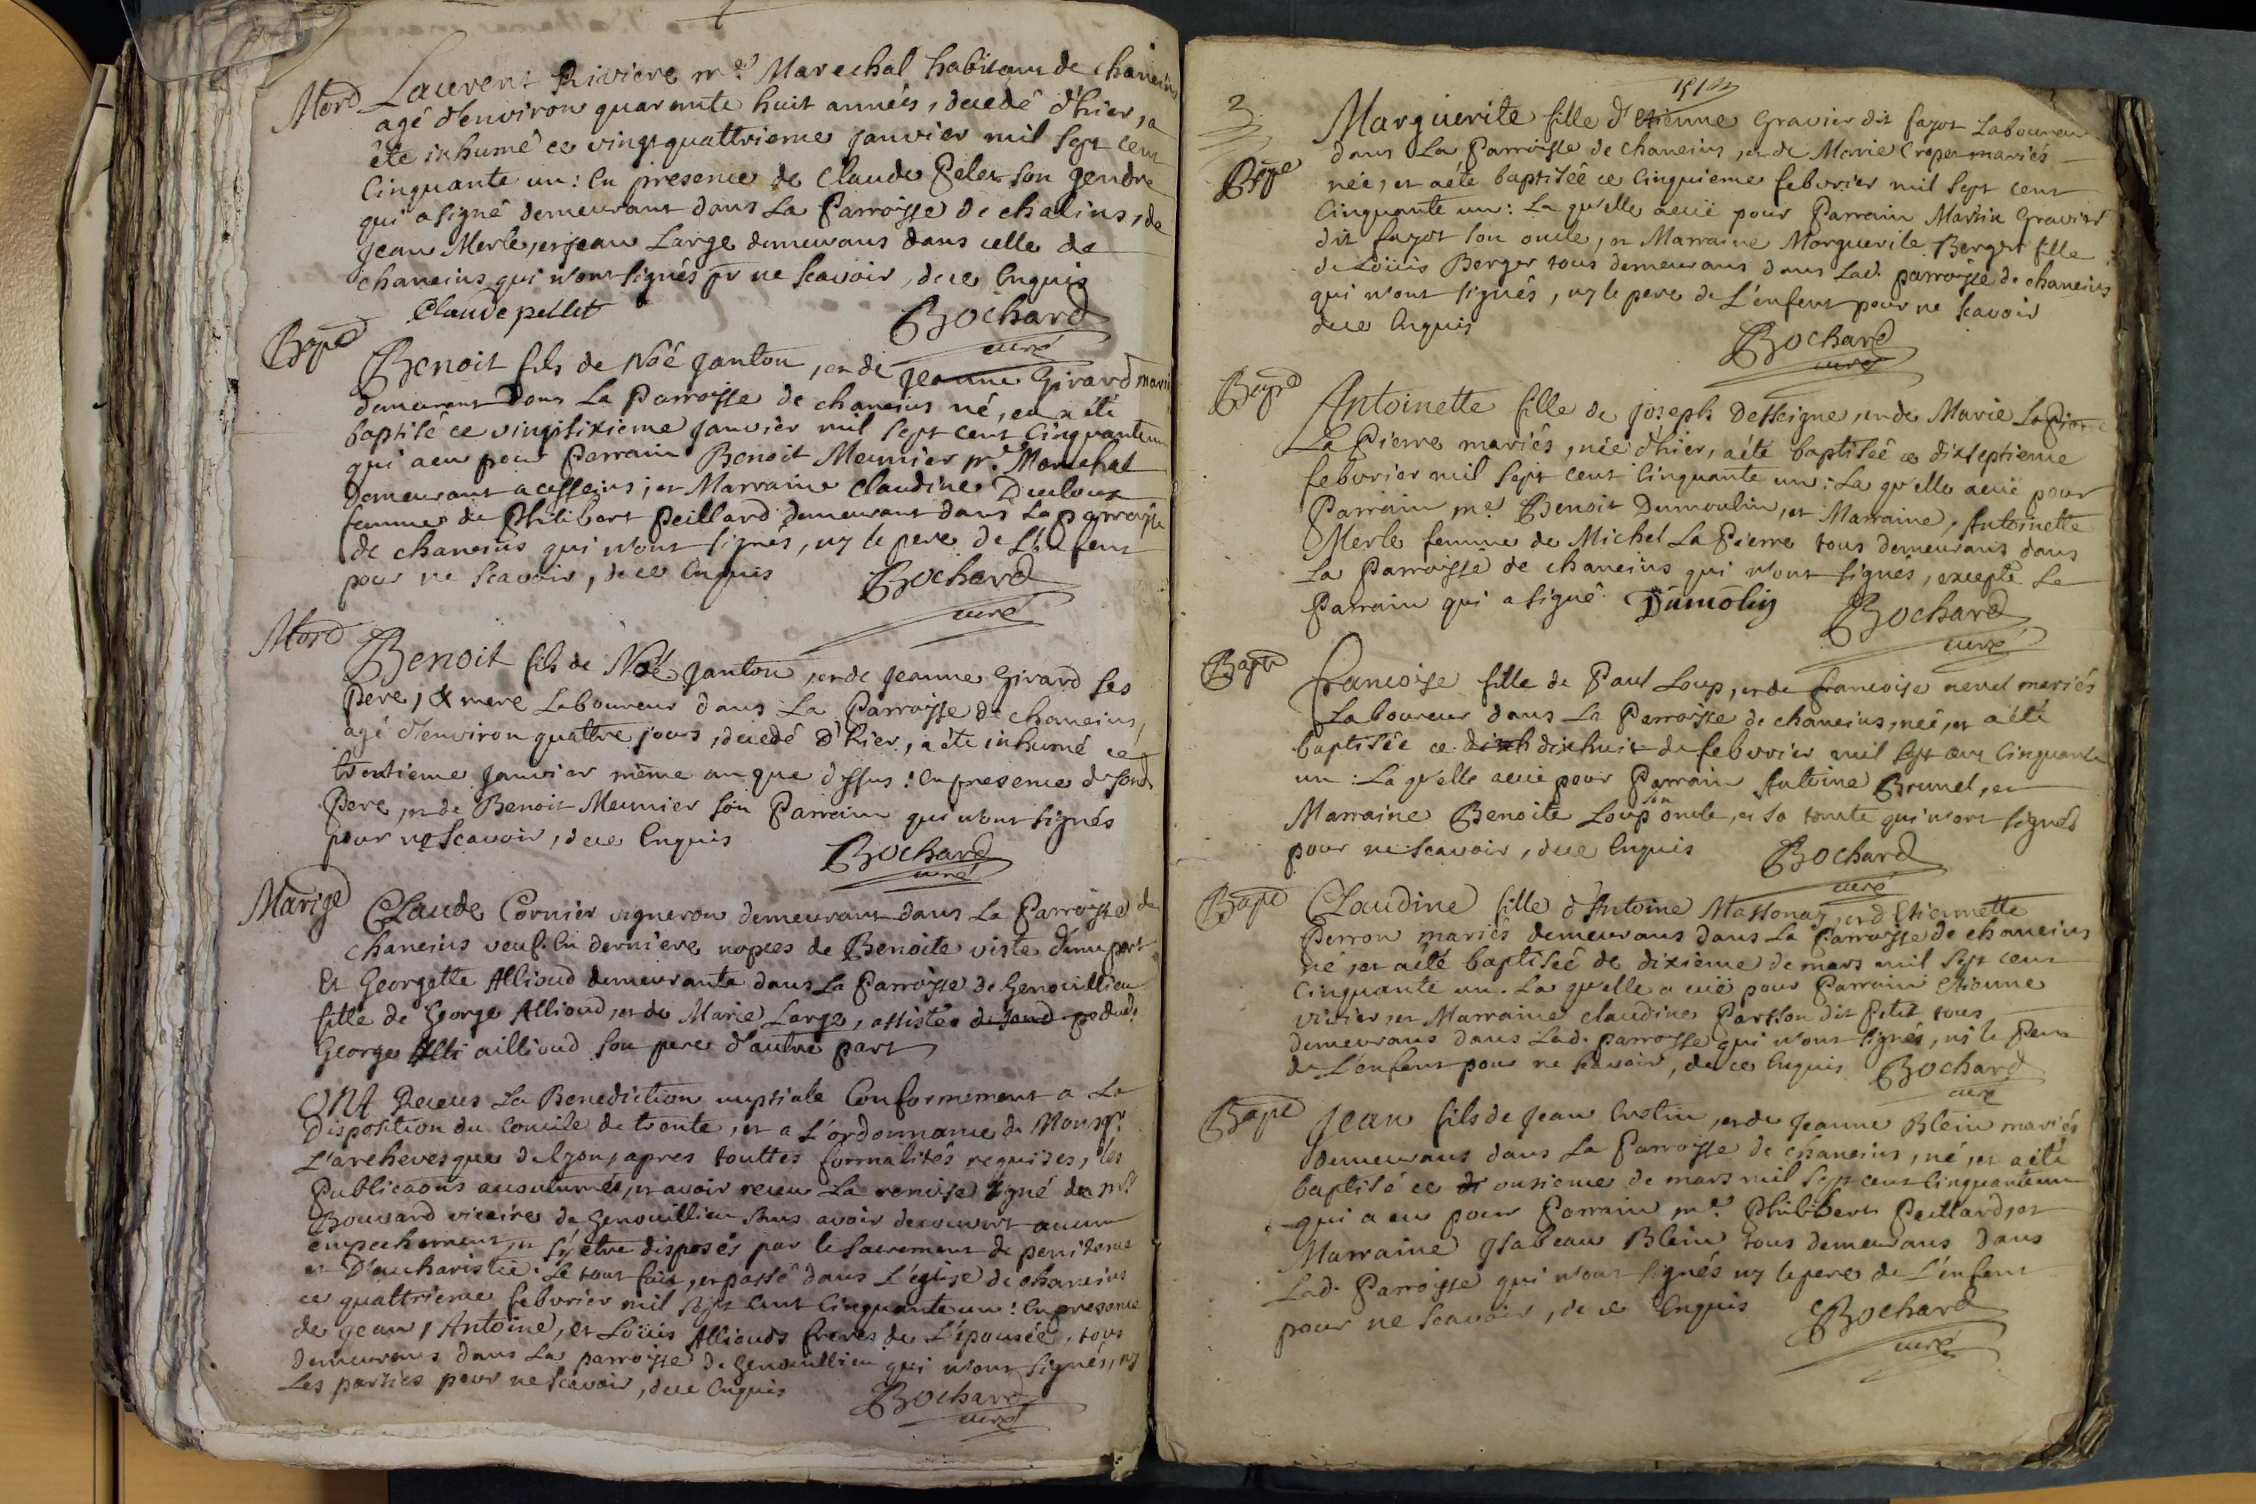 Mord
Laurent Riviere me. Marechal habitant de chaneins
agé d'environ quarante huit années, decedé d'hier, a
été inhumé ce vingt quattrieme janvier mil sept cent
Cinquante un : En presence de Claude Pelet son gendre
qui a signé demeurant dans La Parroisse de chaleins, de
jean Merle, et jean Large demeurans dans celle de
chaneins qui n'ont signés pr ne scavoir, de ce Enquis
Claude pellet
Bochard
curé
Bapt
Benoit fils de Noé janton, et de jeanne Girard mariés
demeurant dans La Parroisse de chaneins né, et a été
baptisé ce vingtsixieme janvier mil sept cent Cinquanteun
qui a eu pour Parrain Benoit Meunier me. Marechal
demeurant a cesseins ; et Marraine Claudine Ducloux
femme de Philibert Peillard demeurant dans La parroisse
de chaneins qui n'ont signés, ny le pere de L'enfent
pour ne scavoir, de ce Enquis
Bochard
curé
Mord
Benoit fils de Noé janton, et de jeanne Girard ses
Pere, & mere Laboureur dans La Parroisse de chaneins,
agé d'environ quattre jours, decedé d'hier, a été inhumé ce
trentieme janvier même an que dessus : En presence de sond.
Pere, et de Benoit Meunier son Parrain qui n'ont signés
pour ne scavoir, de ce Enquis
Bochard
curé
Marige
Claude Cornier vigneron demeurant dans La Parroisse de
chaneins veuf En derniere nopces de Benoite viste d'une part
Et Georgette Allioud demeurante dans La Parroisse de Genouillieu
fille de George Allioud, et de Marie Large, assistée de sond. pe dud.
George Alli aillioud son pere d'autre part
ONt Receus La Benediction nuptiale Conformement a La
Disposition du Concile de trente, et a L'ordonnance de Monsgr.
L'archevesque de lyon, apres touttes formalités requises, les
Publicaons accoutumées, et avoir receu La remise signé de mr.
Bouvard vicaire de Genouillieu sans avoir decouvert aucun
empechement, et s'y etre disposés par le sacrement de penitence
et D'eucharistie : Le tout fait, et passé dans L'église de chaneins
ce quattrieme febvrier mil sept cent Cinquante un : En presence
de jean, Antoine, et Loüis Alliouds freres de L'épousée, tous
demeurans dans La parroisse de Genouillieu qui n'ont signés, ny
Les parties pour ne scavoir, de ce Enquis
Bochard
curé
3
Bape
Marguerite fille d'Etienne Gravier dit fayot Laboureur
dans La Parroisse de chaneins, et de Marie Croper mariés
née, et a été baptisée ce Cinquieme febvrier mil sept cent
Cinquante un : La qu'elle a euë pour Parrain Martin Gravier
dit fayot son oncle, et Marraine Marguerite Berger fille
de Loüis Berger tous demeurans dans Lad. parroisse de chaneins
qui n'ont signés, ny le pere de L'enfent pour ne scavoir
de ce Enquis
Bochard
curé
Bape
Antoinette fille de joseph Desseigne, et de Marie LaPierre
La Pierre mariés, née d'hier, a été baptisée ce dixseptieme
febvrier mil sept cent Cinquante un : La qu'elle a euë pour
Parrain me. Benoit Dumoulin, et Marraine, Antoinette
Merle femme de Michel La Pierre tous demeurans dans
La Parroisse de chaneins qui n'ont signés, excepté Le
Parrain qui a signé. Dumolin
Bochard
curé
Bapt
francoise fille de Paul Loup, et de francoise nevel mariés
Laboureur dans La Parroisse de chaneins, née, et a été
baptisée ce dixh dixhuit de febvrier mil sept cent Cinquante
un : La qu'elle a euë pour Parrain Antoine Brunel, et
Marraine Benoite Loup son oncle, et sa tante qui n'ont signés
pour ne scavoir, de ce Enquis
Bochard
curé
Bapt
Claudine fille d'Antoine Massonay, et d'Etiennette
Perron mariés demeurans dans La Parroisse de chaneins
né, et a été baptisée de dixieme de mars mil sept cent
Cinquante un. La qu'elle a euë pour Parrain Etienne
vivier, et Marraine Claudine Parsson dit Petit tous
demeurans dans Lad. parroisse qui n'ont signés, ni le Pere
de L'enfent pour ne scavoir, de ce Enquis
Bochard
curé
Bapt
jean fils de jean Crostin, et de jeanne Blein mariés
demeurans dans La Parroisse de chaneins, né, et a été
baptisé ce di onsieme de mars mil sept cent Cinquanteun
qui a eu pour Parrain me. Philibert Peillard, et
Marraine ysabeau Blein tous demeurans dans
Lad. Parroisse qui n'ont signés ny le pere de L'enfent
pour ne scavoir, de ce Enquis
Bochard
curé